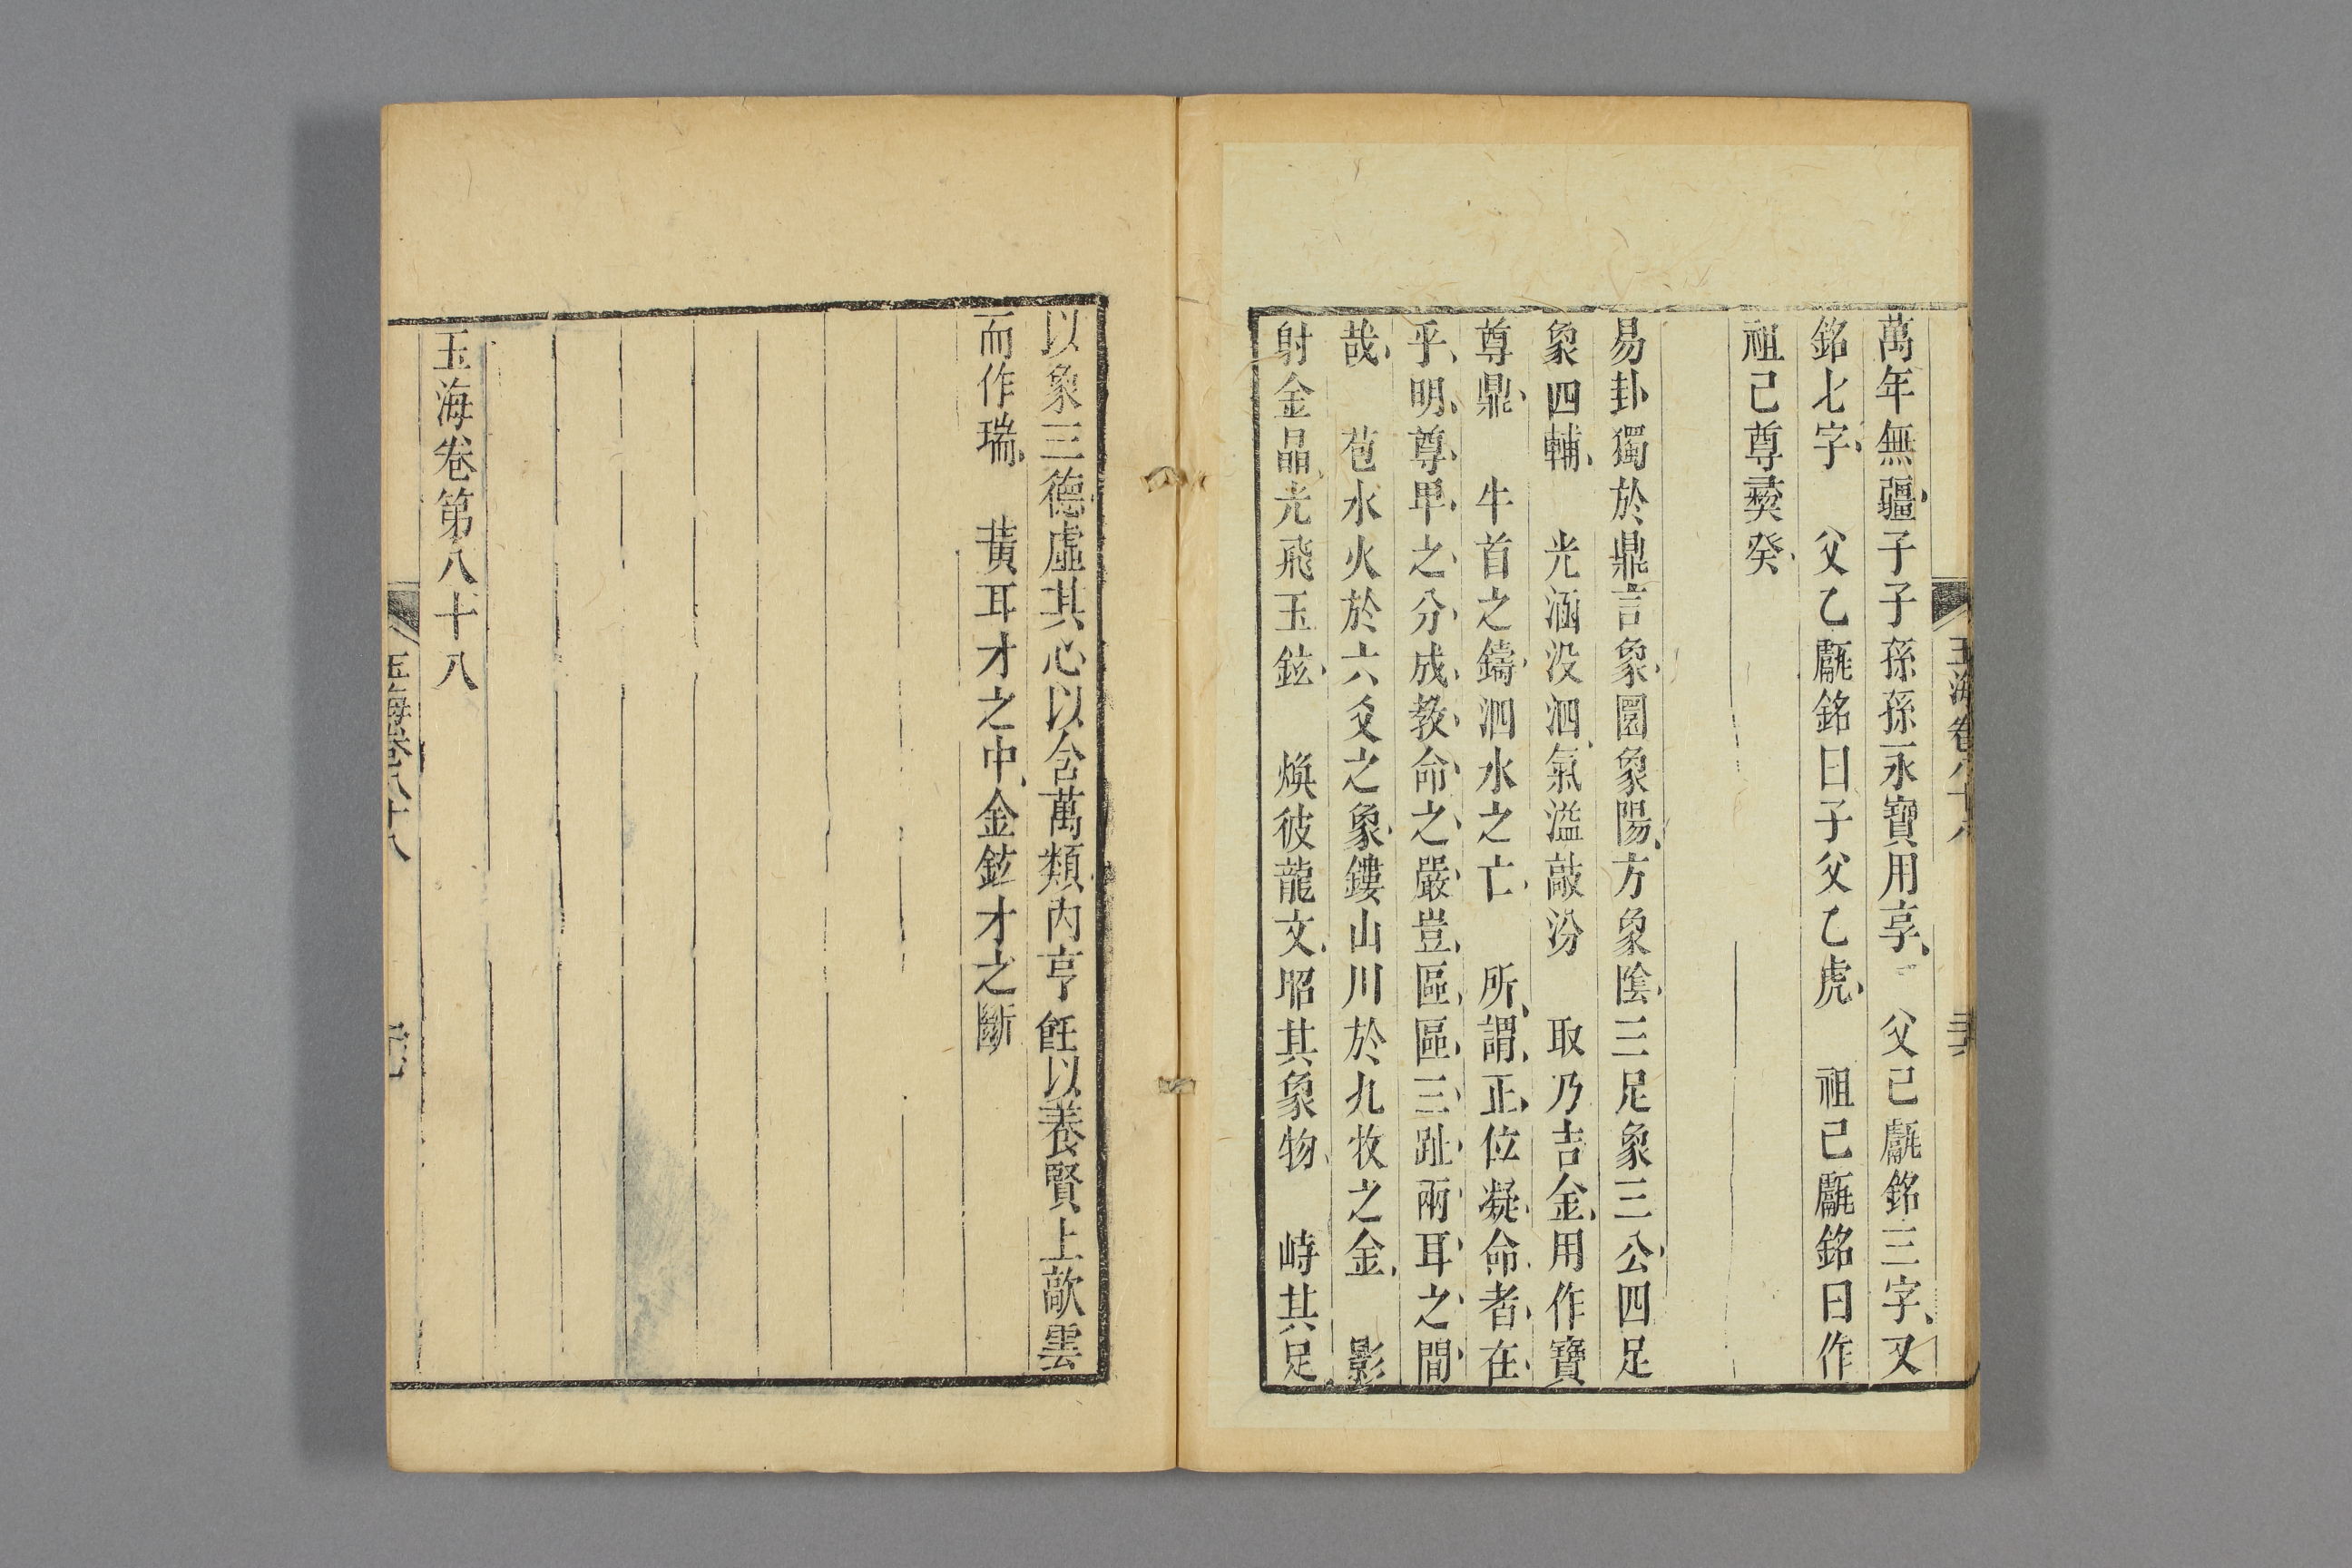 玉海卷八十八
萬年無疆子子孫孫永寶用享 父己甗銘三字又
銘七字 父乙甗銘曰子父乙虎 祖己甗銘曰作
祖己尊彝癸
易卦獨於鼎言象圜象陽方象陰三足象三公四足
象四輔 光涵没泗氣溢敲汾 取乃吉金用作寶
尊鼎 牛首之鑄泗水之亡 所謂正位凝命者在
乎明尊卑之分成教命之嚴豈區區三趾兩耳之間
哉 苞水火於六爻之象鏤山川於九牧之金 影
射金晶光飛玉鉉 煥彼龍文昭其象物 峙其足
以象三德虛其心以含萬類内亨飪以養賢上歊雲
而作瑞 黄耳才之中金鉉才之斷
玉海卷第八十八
玉海卷八十八